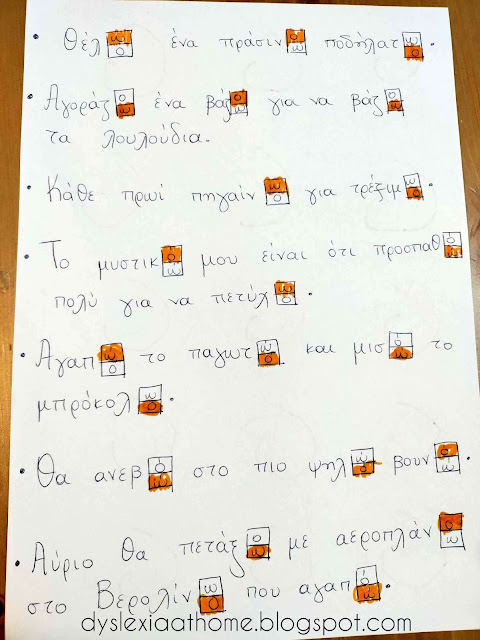 • Θέλ ω/ο ένα πράσιν ο/ω ποδήλατ ω/ο.
• Αγοράζ ο/ω ένα βάζ ο/ω για να βάζ ο/ω
τα λουλούδια.
• Κάθε πρωί πηγαίν ω/ο για τρέξιμ ω/ο.
• Το μυστικ ό/ώ μου είναι ότι προσπαθ ό/ώ
πολύ για να πετύχ ω/ο.
• Αγαπ ώ/ό το παγωτ ώ/ό και μισ ό/ώ το
μπρόκολ ω/ο.
• Θα ανεβ ό/ώ στο πιο ψηλ ώ/ό βουν ό/ώ.
• Αύριο θα πετάξ ο/ω με αεροπλάν ο/ω
στο Βερολίν ω/ο που αγαπ ό/ώ.
dyslexiaathome.blogspot.com